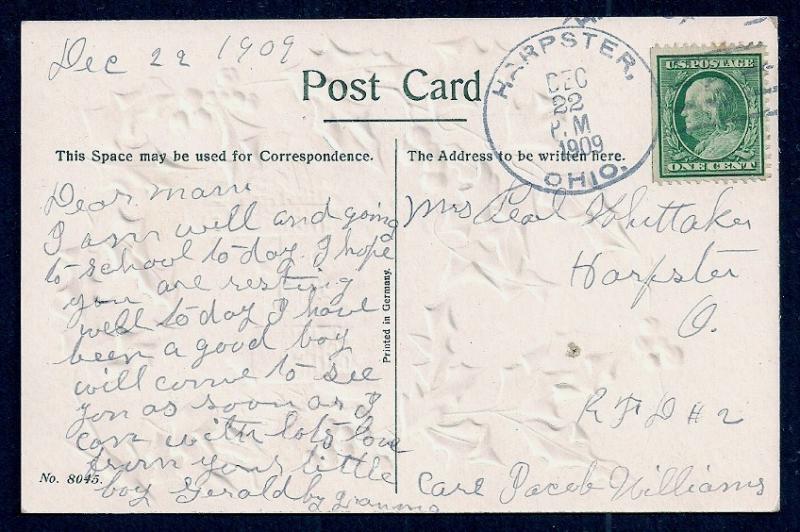 Dec 22 1909
Post Card
HARPSTER,
DEC
22
P.M
1909
OHIO.
U.S. POSTAGE
ONE CENT
This Space may be used for Correspondence.
The Address to be written here.
Dear mam
I am well and going
to school to day. I hope
you are resting
well to day I have
been a good boy
will come to see
you as soon as I
can with lots love
from your little
boy Gerald by gramma
Printed in Germany.
No. 8045.
Mrs Pearl Whittaker
Harpster
O.
R F D # 2
Care Jacob Williams